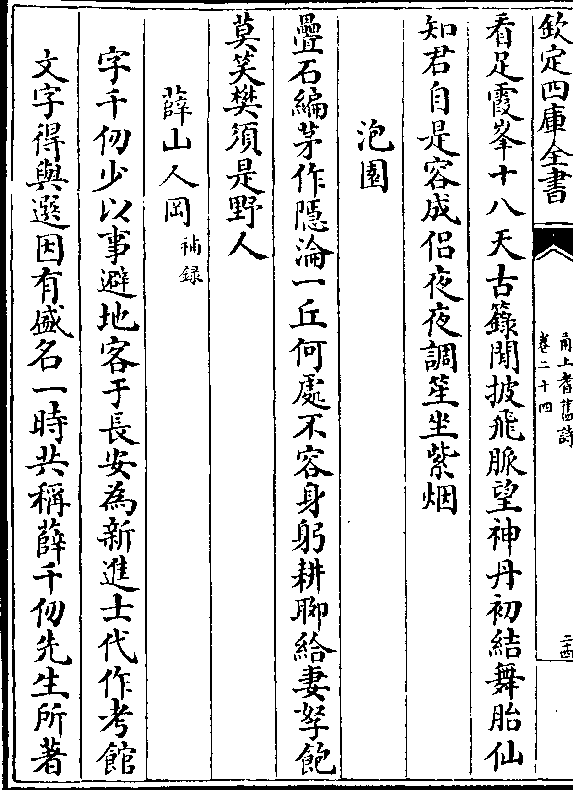 欽定四庫全書
甬上耆舊詩
卷二十四
二十四
看足霞峯十八天古籙閒披飛脈望神丹初結舞胎仙
知君自是容成侣夜夜調笙坐紫烟
泡園
疊石編茅作隱淪一丘何處不容身躬耕聊給妻孥飽
莫笑樊須是野人
薛山人岡補録
字千仞少以事避地客于長安為新進士代作考館
文字得與選因有盛名一時共稱薛千仞先生所著